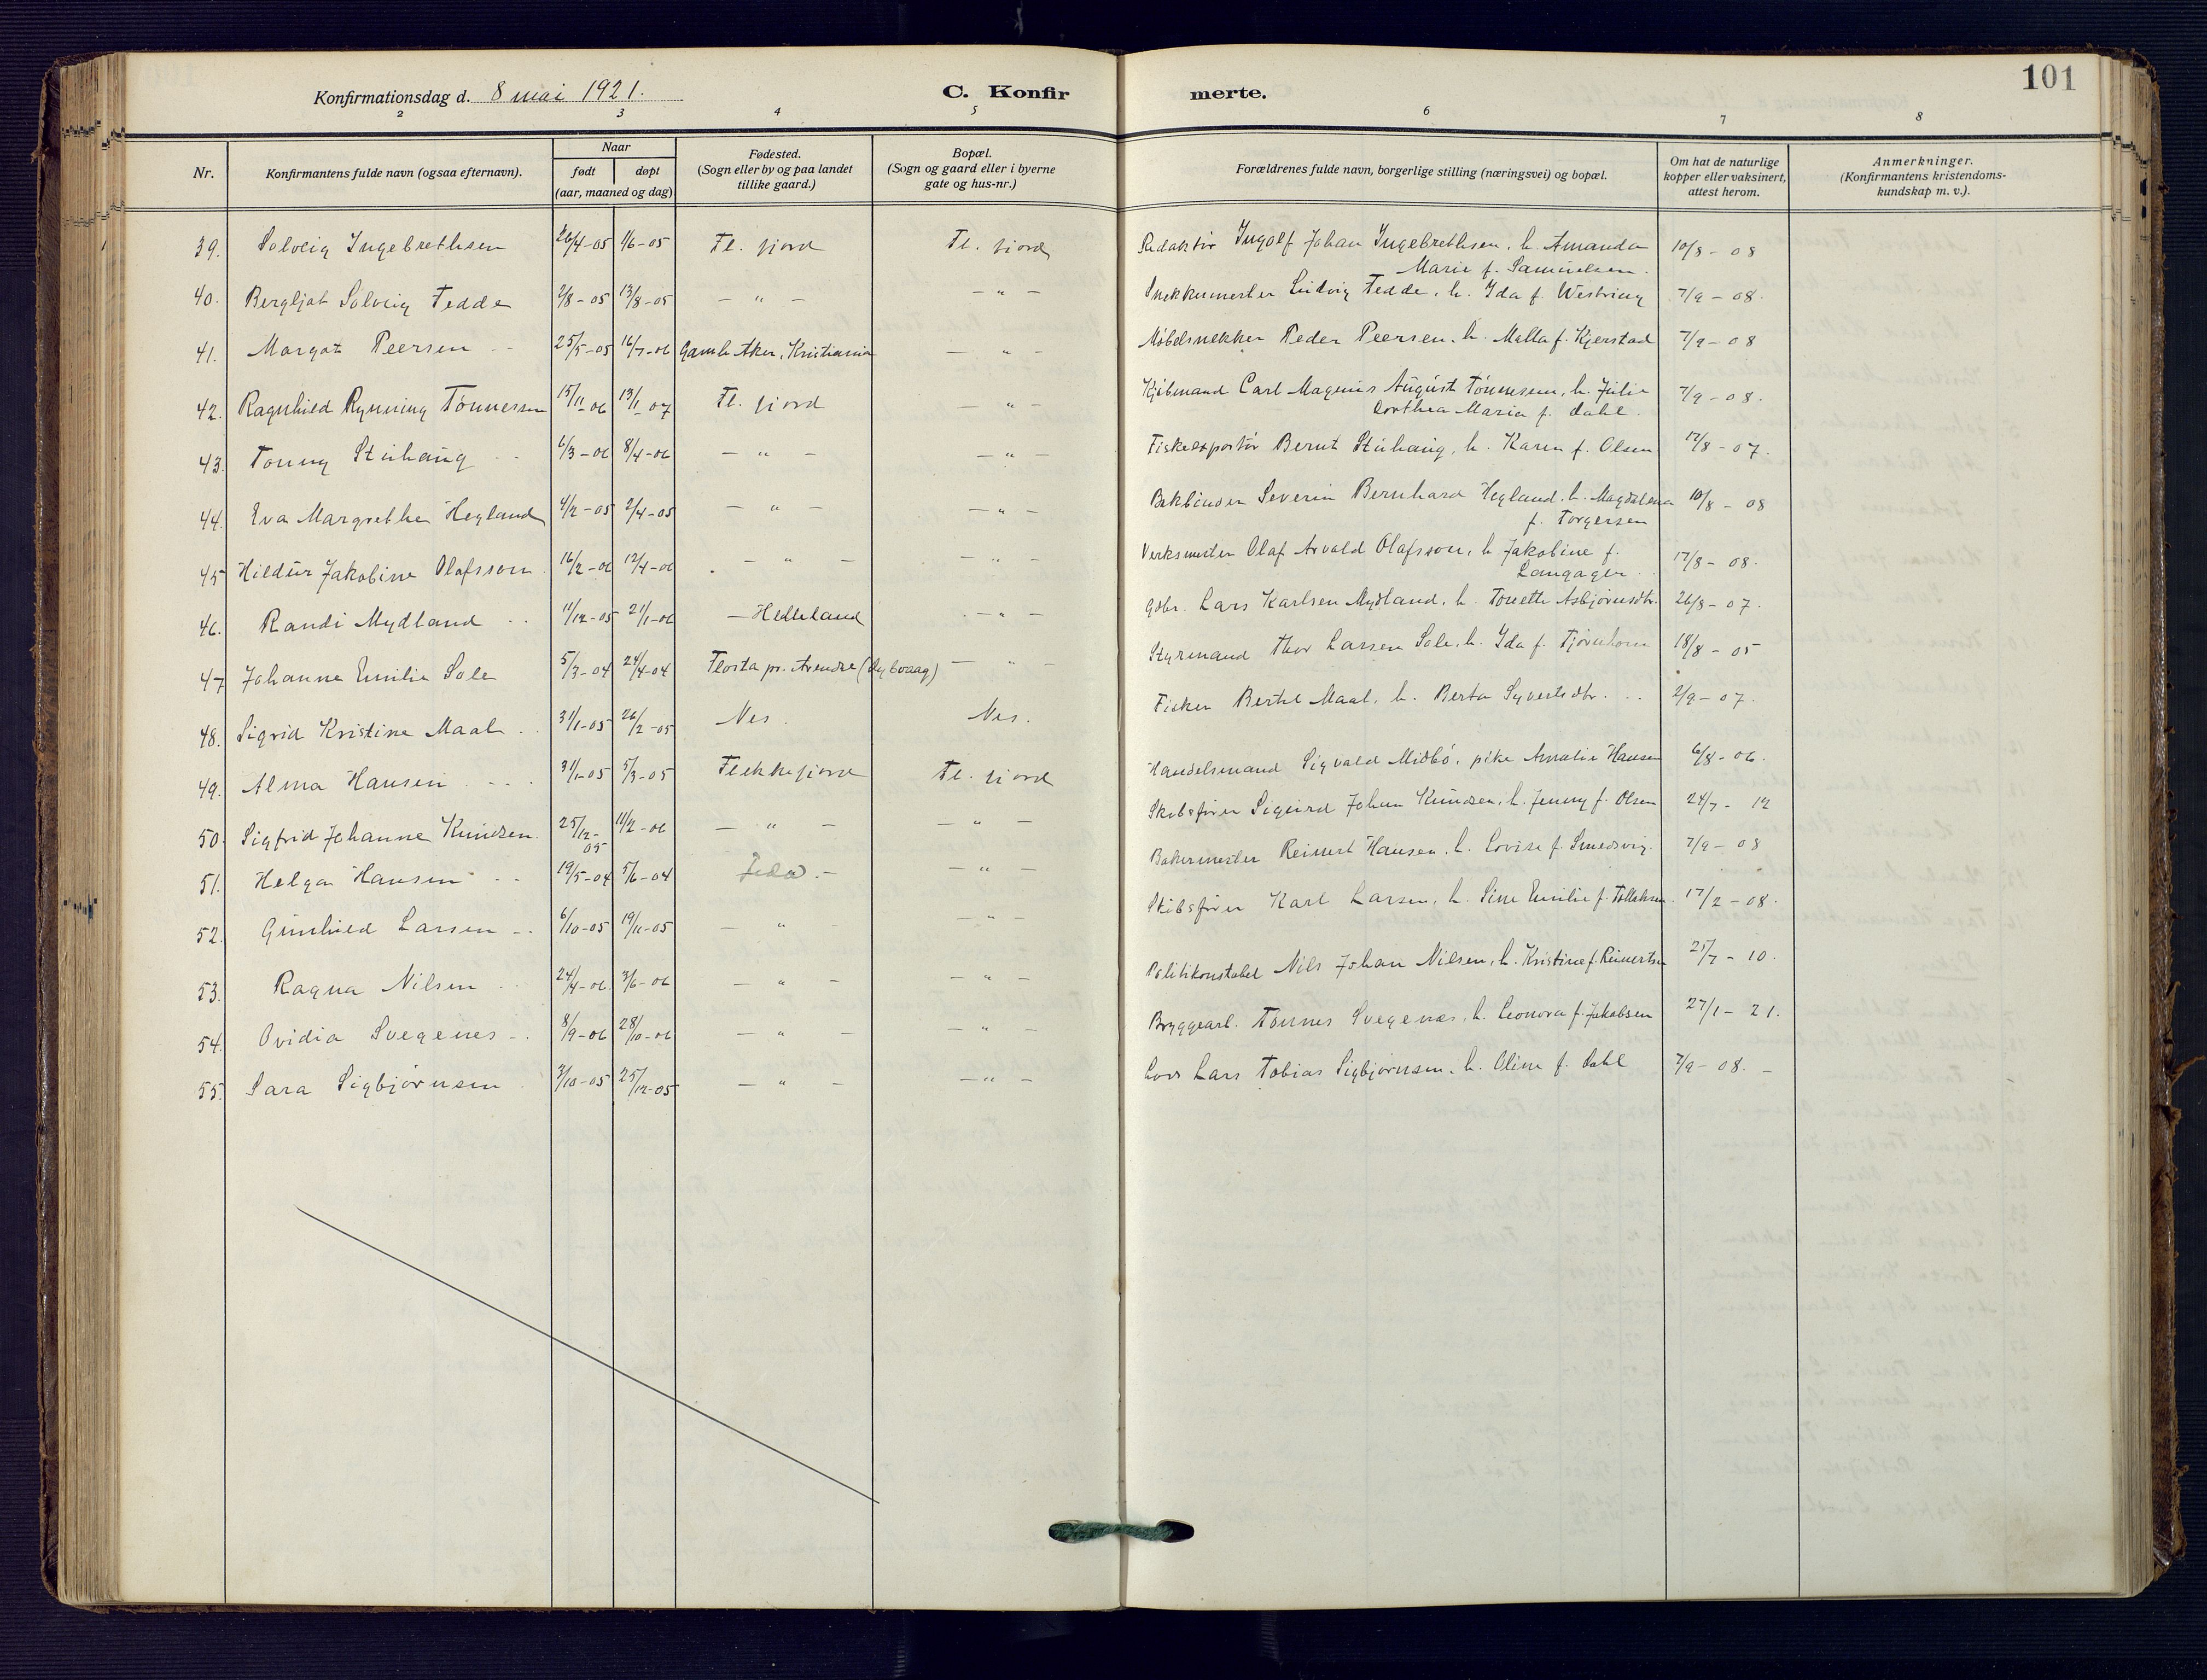 101
Konfirmationsdag d. 8 mai 1921.
C. Konfirmerte.
2 3 4 5 6 7 8
Nr.
Konfirmantens fulde navn (ogsaa efternavn).
Naar
født
døpt
(aar, maaned og dag)
Fødested.
(Sogn eller by og paa landet
tillike gaard.)
Bopæl.
(Sogn og gaard eller i byerne
gate og hus-nr.)
Forældrenes fulde navn, borgerlige stilling (næringsvei) og bopæl.
Om hat de naturlige
kopper eller vaksinert,
attest herom.
Anmerkninger.
(Konfirmantens kristendoms-
kundskap m. v.).
39. Solveig Ingebrethsen 26/4-05 1/6-05 Fl. fjord Fl. fjord Redaktør Ingolf Johan Ingebrethsen, h. Amanda 10/8 - 08
Marie f. Samuelsen.
40. Bergljot Solveig Tedde 2/8-05 13/8-05 - " - - " - Snekkermester Ludvig Tedde, h. Ida f. Westring 7/9 - 08.
41. Margot Peersen 25/5-05 16/7-06 Gamle Aker, Kristiania - " - Møbelsnekker Peder Peersen, h. Malla f. Kjerstad 7/9 - 08
42. Ragnhild Rynning Tönnessen 15/11-06 13/1-07 Fl. fjord - " - Kjøbmand Carl Magnus August Tönnesen, h. Julie 7/9 - 08.
Dorthea Maria f. Dahl.
43. Tonny Stuhaug 6/3-06 8/4-06 - " - - " - Fiskeexportör Bernt Stuhaug, h. Karen f. Olsen 12/8 - 07.
44. Eva Margrethe Hegland 4/2-05 2/4-05 - " - - " - Bokbinder Severin Bernhard Hegland, h. Magdalena 10/8 - 08
f. Torgersen
45 Hildur Jakobine Olafsson 16/2-06 12/4-06 - " - - " - Verksmester Olaf Arvald Olafsson, h. Jakobine f. 17/8 - 08.
Langager
46. Randi Mydland 11/12-05 21/1-06 - Helleland - " - Gdbr. Lars Karlsen Mydland, h. Tonette Asbjörnsdtr. 26/8 - 07.
47 Johanne Emilie Sole 5/3-04 24/4-04 Flosta pr. Arendal (Dybvaag) - " - Styrmand Thor Larsen Sole, h. Ida f. Tjörnhom 18/8 - 05
48. Sigrid Kristine Maal 31/1-05 26/2-05 Nes. Nes. Fisker Bertel Maal, h. Berta Syvertsdtr. 2/9 - 07.
49. Alma Hansen 31/1-05 5/3-05 Flekkefjord Fl. fjord Handelsmand Sigvald Midbö, pike Amalie Hansen 6/8 - 06.
50. Sigfrid Johanne Knudsen 25/12-05 11/2-06 - " - - " - Skibsförer Sigurd Johan Knudsen, h. Jenny f. Olsen 24/7 - 12
51. Helga Hansen 19/5-04 5/6-04 Feda - " - Bakermester Reinert Hansen, h. Lovise f. Smedsvig. 7/9 - 08
52. Gunhild Larsen 6/10-05 19/11-05 - " - - " - Skibsförer Karl Larsen, h. Sine Emilie f. Tollaksen. 17/2 - 08.
53. Ragna Nilsen 24/4-06. 3/6-06 - " - - " - Politikonstabel Nils Johan Nilsen, h. Kristine f. Reinertsen 25/7 - 10.
54. Ovidia Svegenes 8/9-06 28/10-06 - " - - " - Bryggearb. Tönnes Svegenæs, h. Leonora f. Jakobsen 27/1 - 21.
55. Sara Sigbjörnsen 3/10-05 25/12-05 - " - - " - Lods Lars Tobias Sigbjörnsen, h. Oline f. Dahl 7/9 - 08. -